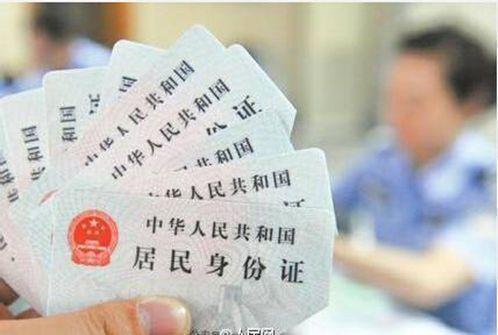 中华人民共和国
中华人民共和国
份证
中华人民共和国
中华人民共和国
证
中华人民共和国
居民身份证
@人民网